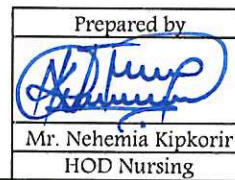 Prepared by
Mr. Nehemia Kipkorir
HOD Nursing